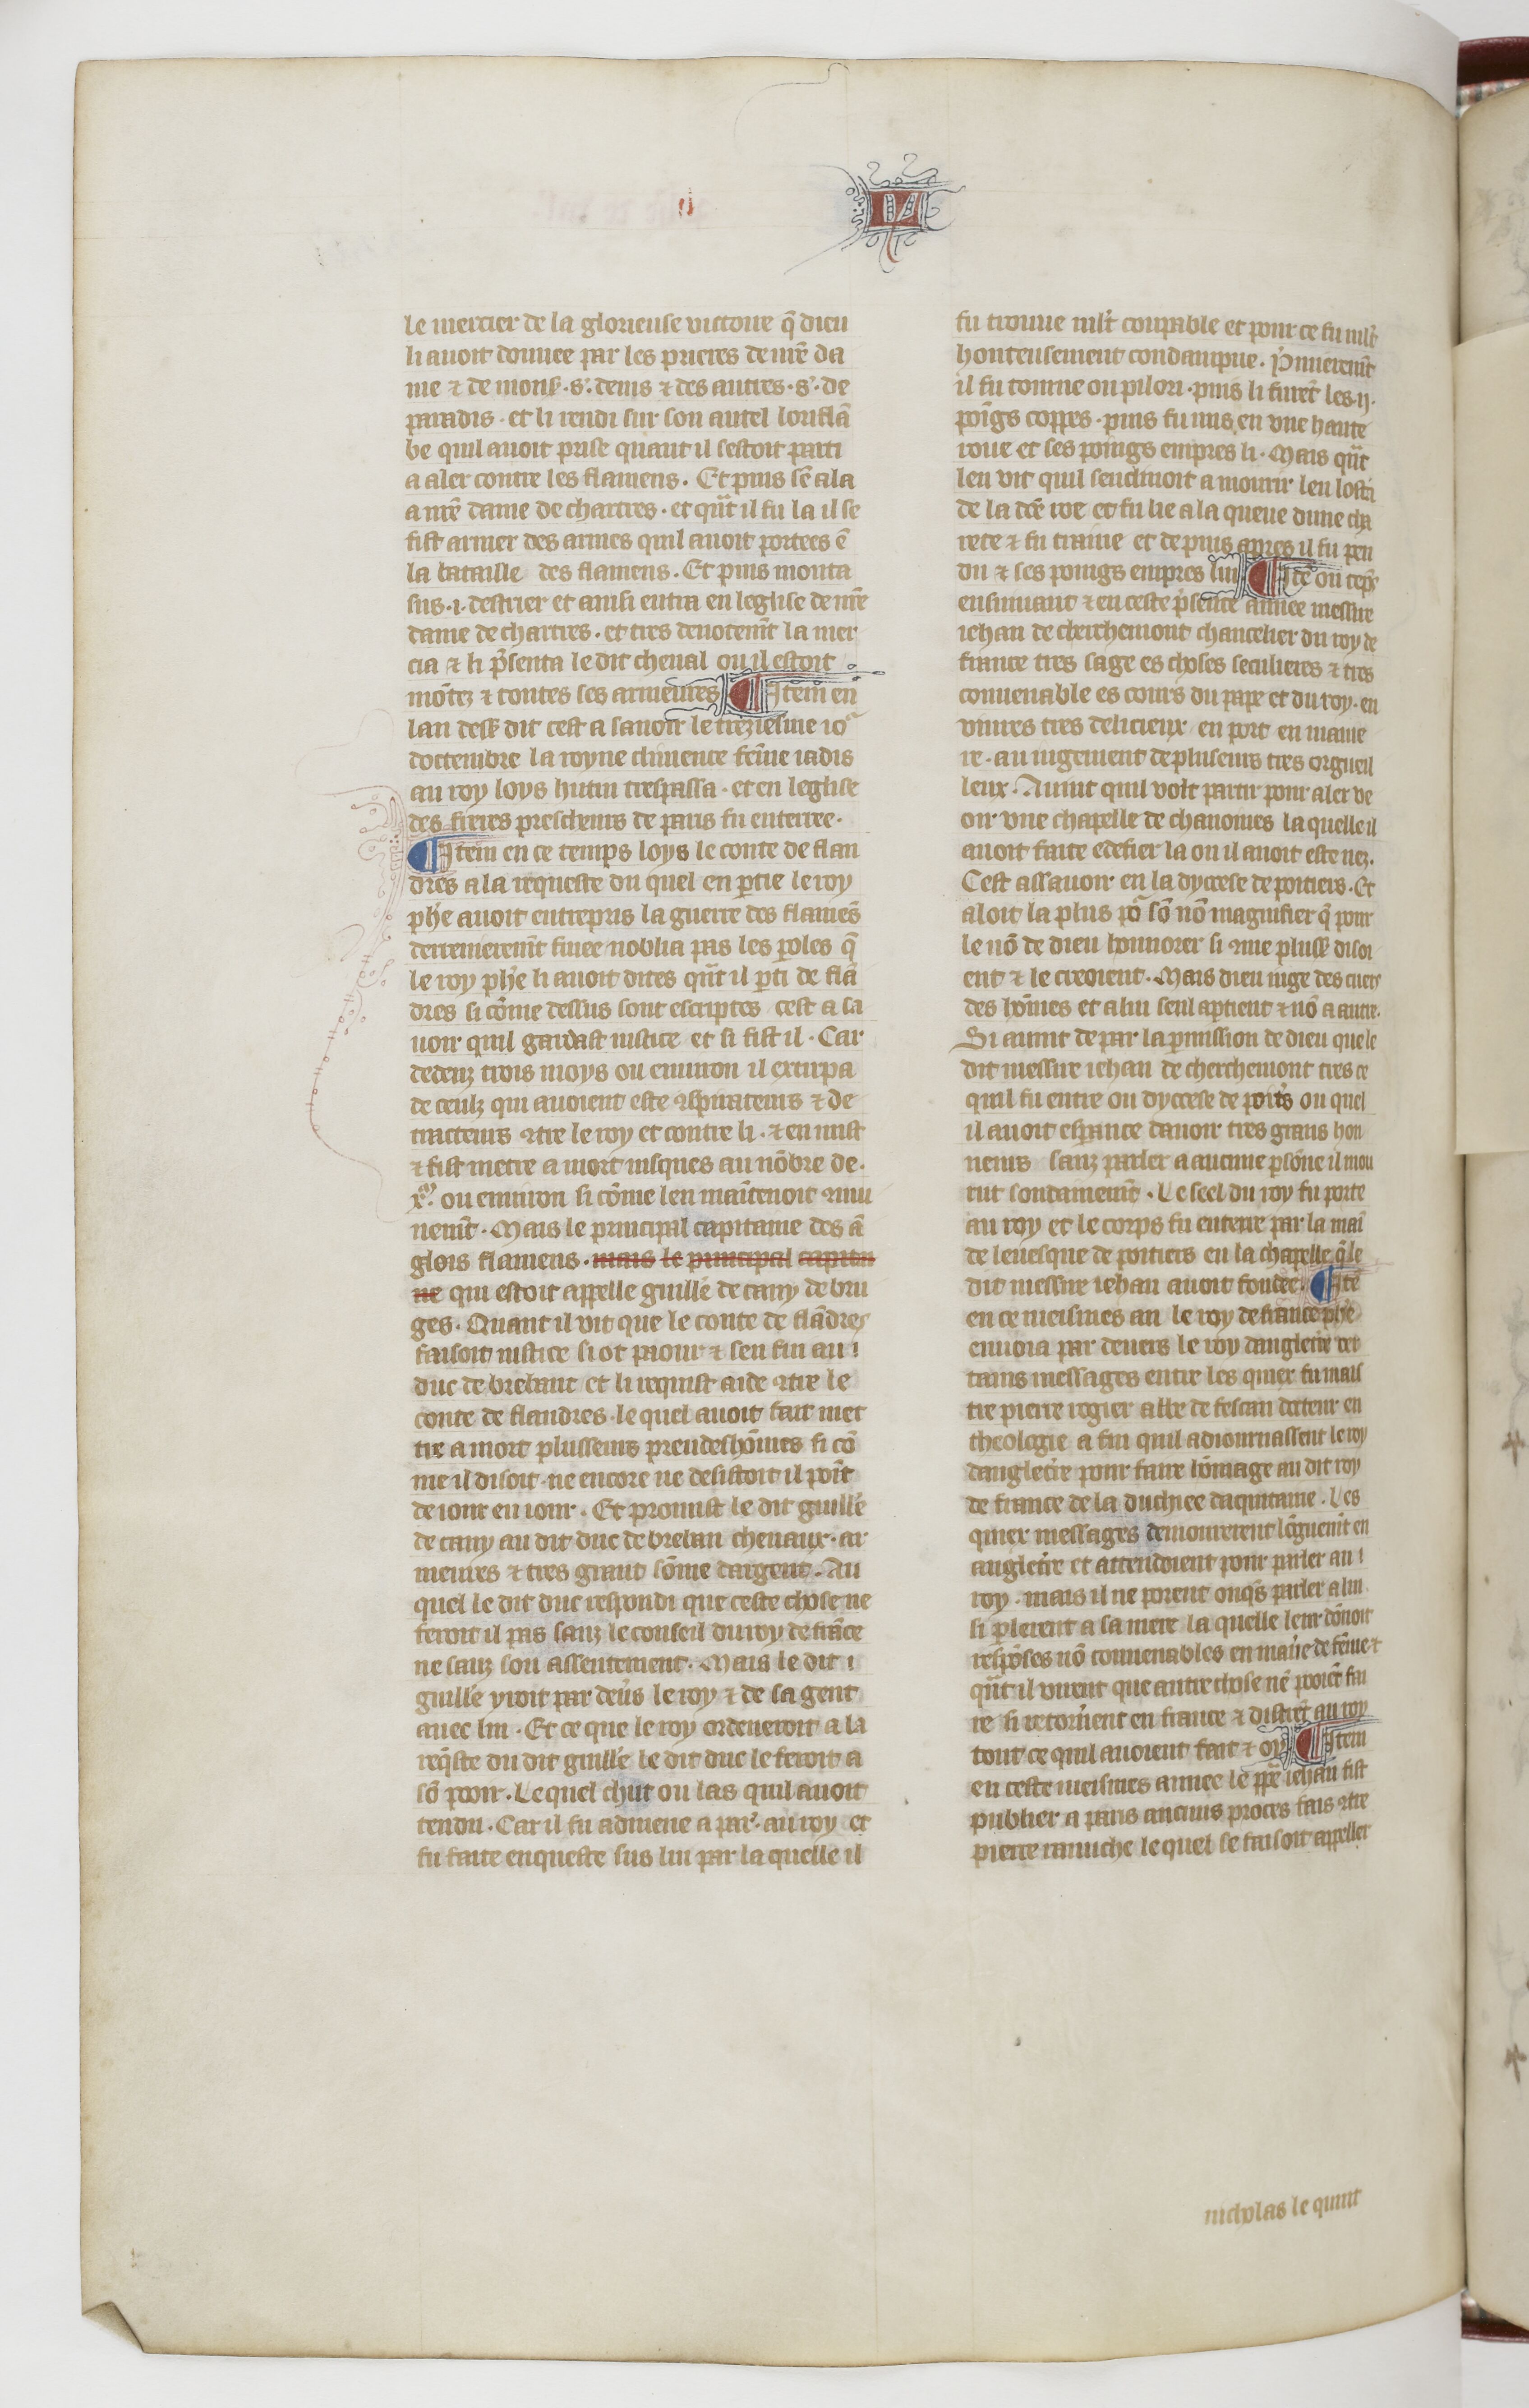 le mercier de la glorieuse victoire q̄ dieu
li auoit donnee par les prieres de nr̄e da
me ⁊ de mons̄ · s͛. denis ⁊ des autres · s͛. de
paradis · et li rendi sur son autel loriflā
be quil auoit prise quant il sestoit parti
a aler contre les flamens . Et puis sē ala
a nr̄e dame de chartres · et qn̄t il fu la il se
fist armer des armes quil auoit portees ē
la bataille des flamens . Et puis monta
sus · i · destrier et ainsi entra en leglise de nr̄e
dame de chartres · et tres deuotemn̄t la mer
cia ⁊ li p̄senta le dit cheual ou il estoit
mōtez ⁊ toutes ses armeures ¶ Item en
lan dess̄ dit cest a sauoir le treziesme io͛
doctembre la royne climence fēme iadis
au roy loys hutin trespassa · et en leglise
des freres prescheurs de paris fu enterree ·
¶ Item en ce temps loys le conte de flan
dres a la requeste du quel en ꝑtie le roy
ph̄e auoit entrepris la guerre des flamēs
derrenieremn̄t finee noblia pas les ꝑoles q̄
le roy ph̄e li auoit dites qn̄t il ꝑti de flā
dres si cōme dessus sont escriptes cest a sa
uoir quil gardast iustice et si fist il · Car
dedenz trois moys ou enuiron il extirpa
de ceulz qui auoient este ꝯspirateurs ⁊ de
tracteurs ꝯtre le roy et contre li · ⁊ en mist
⁊ fist metre a mort iusques au nōbre de ·
xͫ. ou enuiron si cōme len maītenoit ꝯmu
nemn̄t · Mais le principal capitaine des ā
glois flamens · mais le principal capitai
ne qui estoit appelle guill̄e de cany de bru
ges · Quant il vit que le conte de flādres
faisoit iustice si ot paour ⁊ sen fui au ı
duc de brebant et li requist aide ꝯtre le
conte de flandres · le quel auoit fait met
tre a mort plusseurs preudeshōmes si cō
me il disoit · ne encore ne desistoit il poīt
de iour en iour · Et promist le dit guill̄e
de cany au dit duc de breban cheuaux · ar
meures ⁊ tres grant sōme dargent · Au
quel le dit duc respondi que ceste chose ne
feroit il pas sanz le conseil du roy de frāce
ne sanz son assentement · Mais le dit ı
guill̄e yroit par deu̓s le roy ⁊ de sa gent
auec lui · Et ce que le roy ordeneroit a la
req̄ste du dit guill̄e le dit duc le feroit a
sō pooir · Le quel chut ou las quil auoit
tendu · Car il fu admene a par͛. au roy et
fu faite enqueste sus lui par la quelle il
fu trouue ml̄t coupable et pour ce fu ml̄t
honteusement condampne · P̓mieremn̄t
il fu tourne ou pilori · puis li furēt les · ij ·
poīgs coppes · puis fu mis en vne haute
roue et ses poings empres li · Mais qn̄t
len vit quil senclinoit a mourir len losta
de la dc̄e roe et fu lie a la queue dune cha
rete ⁊ fu traine et depuis apres il fu pen
du ⁊ ses poings empres lui ¶ Itē ou tēps
ensiuuant ⁊ en ceste p̄sente annee messire
iehan de cherchemont chancelier du roy de
france tres sage es choses seculieres ⁊ tres
conuenable es cours du pape et du roy · en
viures tres delicieux en port en manie
re · au iugement de pluseurs tres orgueil
leux · Auint quil volt partir pour aler ve
oir vne chapelle de chanoines la quelle il
auoit faite edefier la ou il auoit este nez.
Cest assauoir en la dyocese de poitiers · Et
aloit la plus po͛ sō nō magnifier q̄ pour
le nō de dieu honnorer si ꝯme pluss̄ disoi
ent ⁊ le creoient · Mais dieu iuge des cuers
des hōmes et a lui seul aptient ⁊ nō a autre ·
Si auint de par la ꝑmission de dieu que le
dit messire iehan de cherchemont tres ce
quil fu entre ou dyocese de poit̓s ou quel
il auoit esꝑance dauoir tres grans hon
neurs sanz parler a aucune ꝑsōne il mou
rut soudainemn̄t · Le seel du roy fu porte
au roy et le corps fu enterre par la maī
de leuesque de poitiers en la chapelle q̄ le
dit messire iehan auoit fondee ¶ Itē
en ce meismes an le roy de france ph̄e
enuoia par deuers le roy dangleterre cer
tains messages entre les quiex fu mais
tre pierre rogier abbe de fescan docteur en
theologie a fin quil adiournassent le roy
dangleterre pour faire hōmage au dit roy
de france de la duchiee daquitaine · Les
quiex messages demourerent lōguemn̄t en
angleterre et attendoient pour parler au ı
roy · mais il ne porent onq̄s parler a lui
si ꝑlerent a sa mere la quelle leur dōnoit
respōses nō conuenables en maniere de fēme ⁊
qn̄t il virent que autre chose nē pooiēt fai
re si retornerent en france ⁊ distrēt au roy
tout ce quil auoient fait ⁊ oy ¶ Item
en ceste meismes annee le pp̄e iehan fist
publier a paris aucuns proces fais ꝯtre
pierre ranuche le quel se faisoit appeller
nicholas le quint